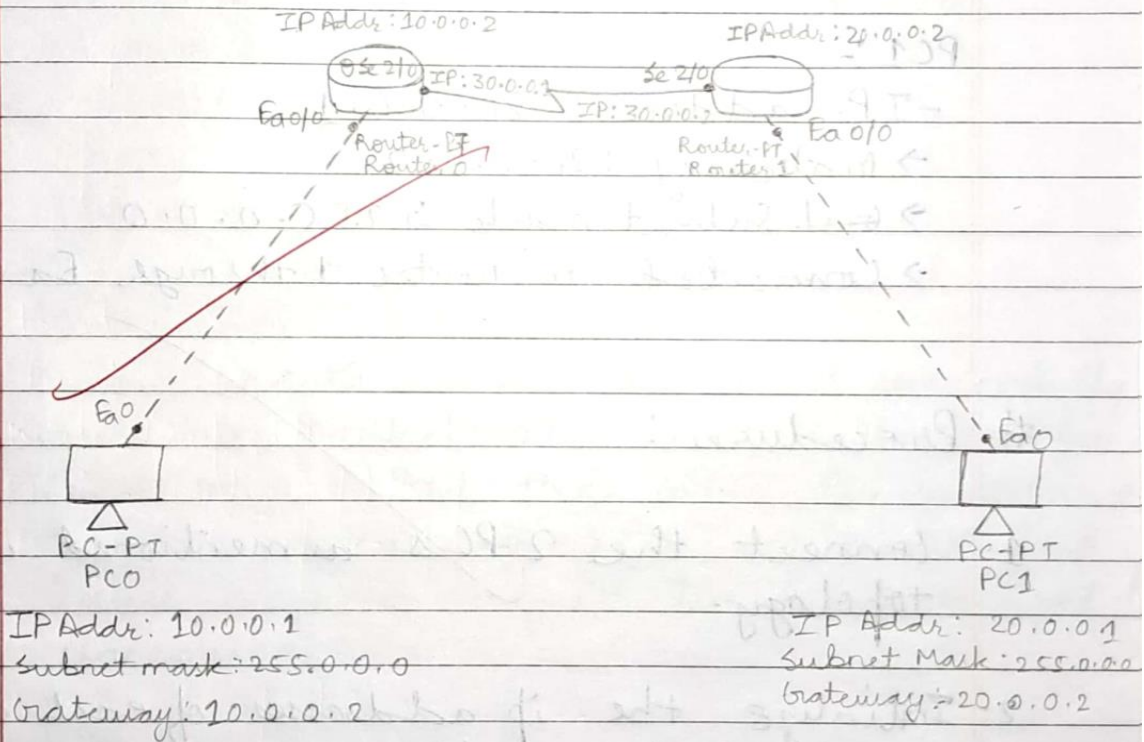 IP Addr: 10.0.0.2
IP Addr: 20.0.0.2
Se 2/0
IP: 30.0.0.1
Se 2/0
IP: 30.0.0.2
Ea 0/0
Ea 0/0
Router-PT
Router 0
Router-PT
Router 1
Ea0
Ea0
PC-PT
PC0
PC-PT
PC1
IP Addr: 10.0.0.1
Subnet mask: 255.0.0.0
Gateway: 10.0.0.2
IP Addr: 20.0.0.1
Subnet Mask: 255.0.0.0
Gateway: 20.0.0.2